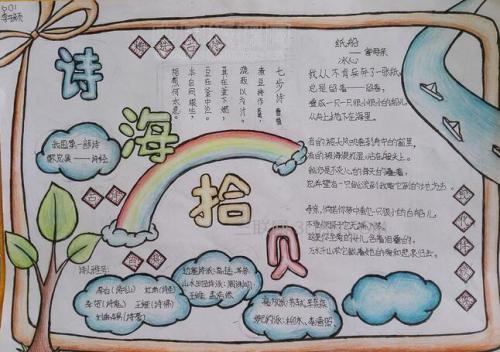 601
诗海拾贝
七步诗 曹植
煮豆持作羹,
漉菽以为汁。
萁在釜下燃,
豆在釜中泣。
本自同根生,
相煎何太急。
纸船
——寄母亲
冰心
我从不肯妄弃了一张纸,
总是留着——留着,
叠成一只一只很小很小的船儿,
从舟上抛下在海里。
有的被天风吹卷到舟中的窗里,
有的被海浪打湿,沾在船头上。
我仍是不灰心的每天的叠着,
总希望有一只能流到我要它到的地方去。
母亲,倘若你梦中看见一只很小的白船儿,
不要惊讶它无端入梦。
这是你至爱的女儿含着泪叠的,
万水千山求它载着她的爱和悲哀归去。
我国第一部诗
歌总集——诗经
诗人雅号:
李白(诗仙) 杜甫(诗圣)
李贺(诗鬼) 王维(诗佛)
刘禹锡(诗豪)
山水田园诗派:
王维、孟浩然